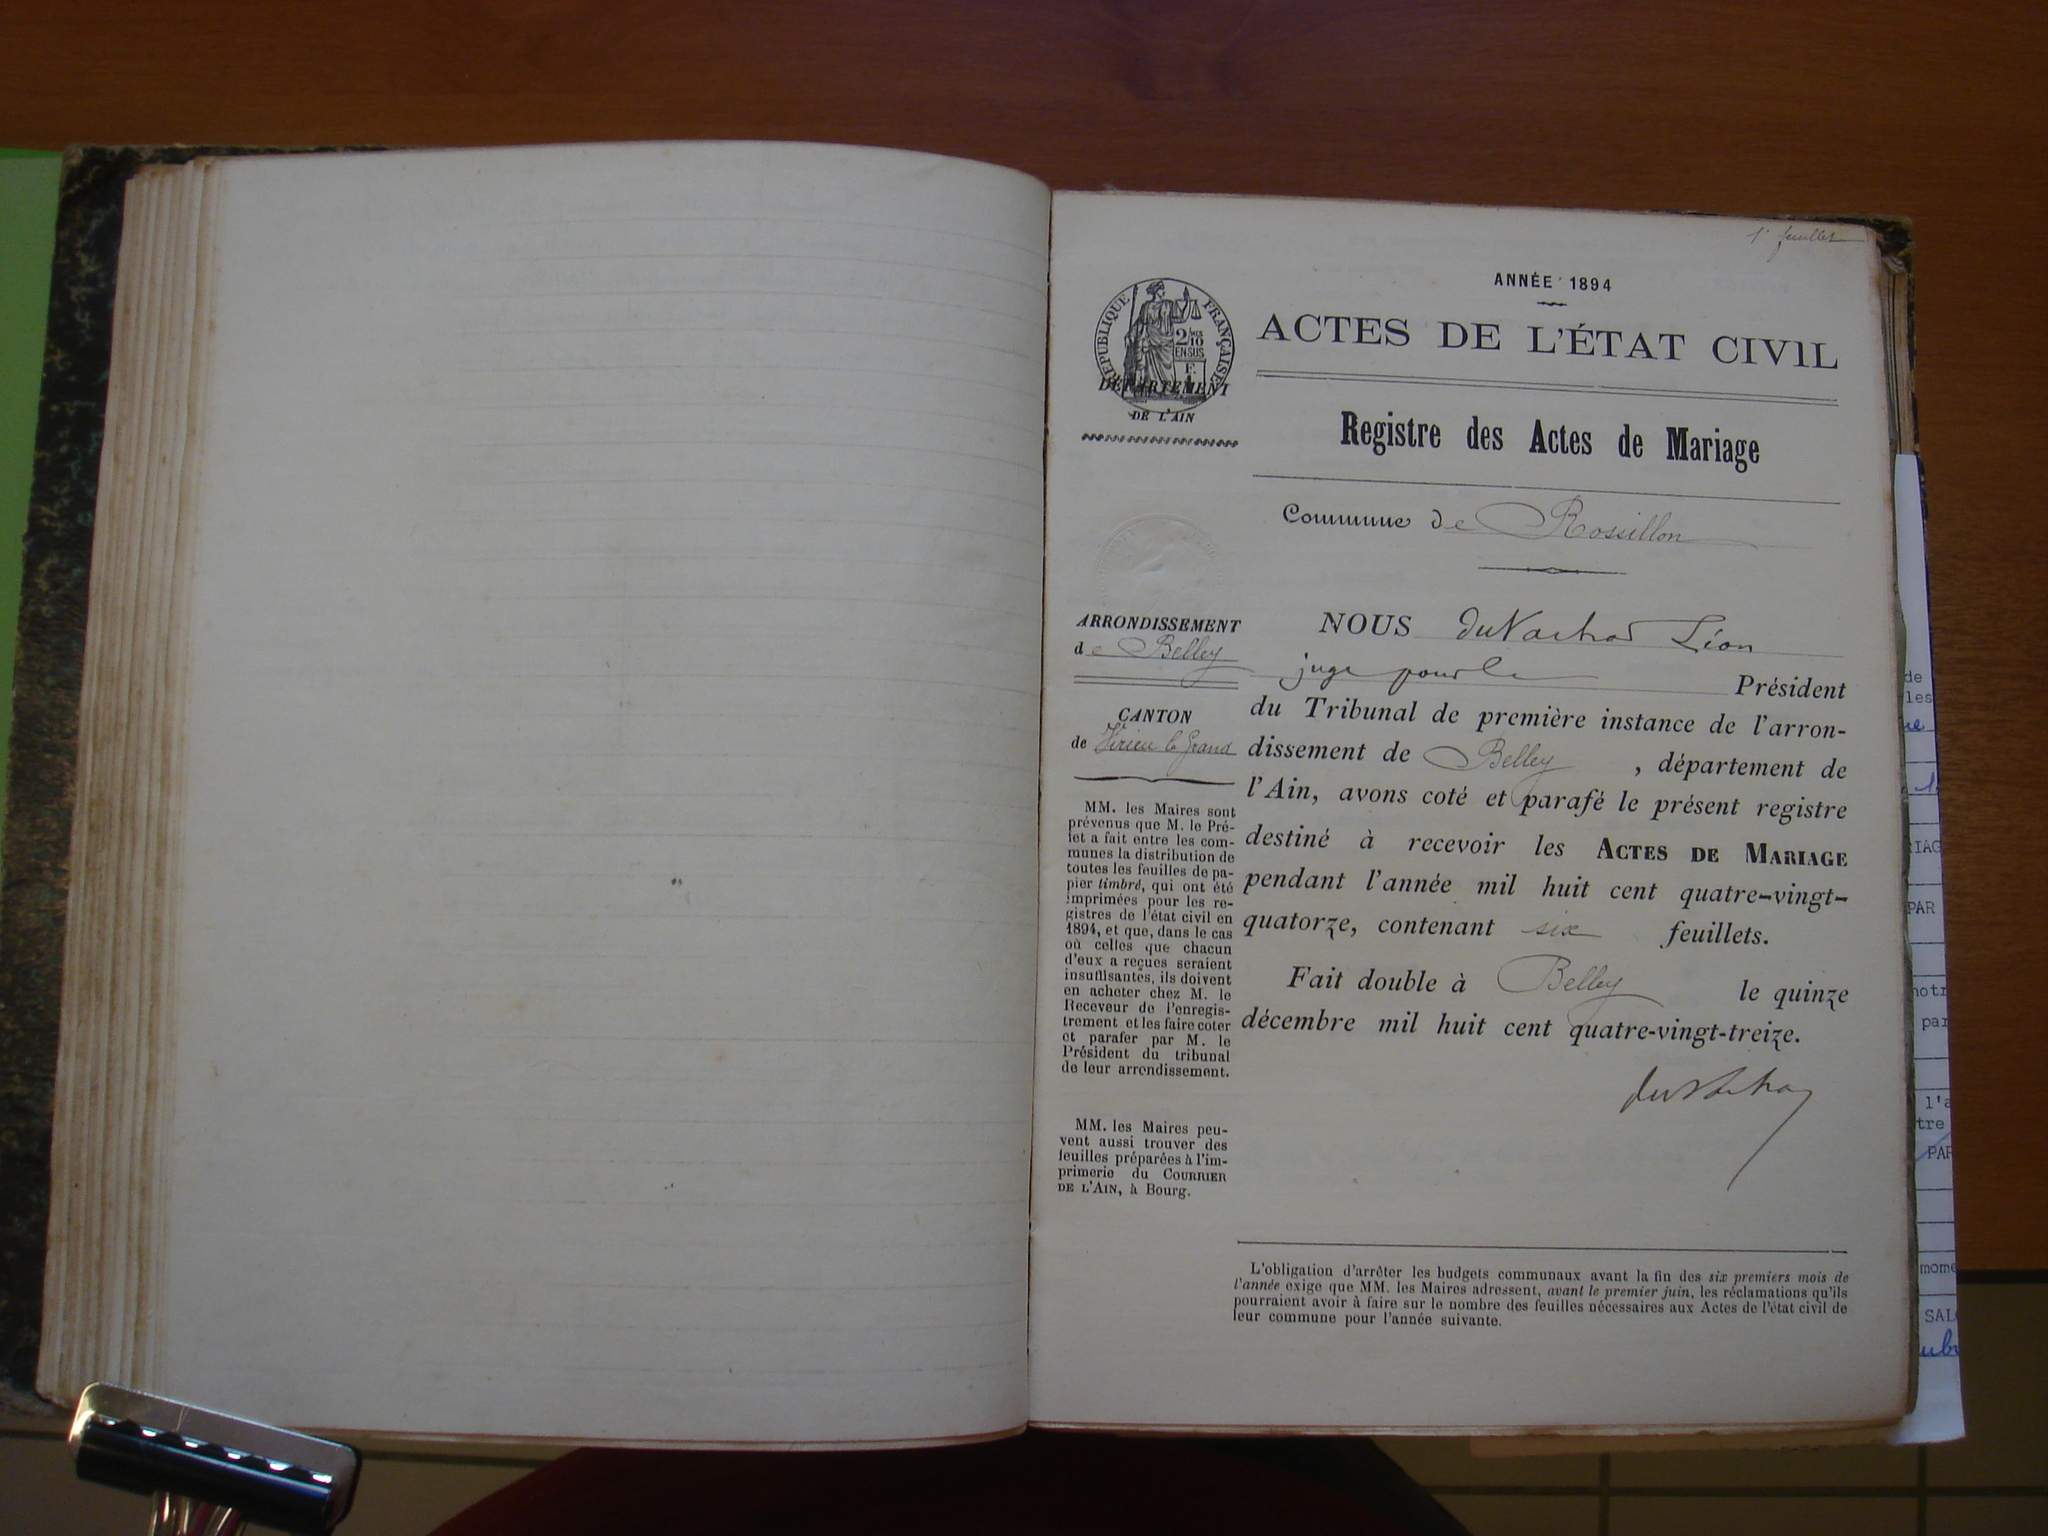 1er feuillet
ANNÉE 1894
ACTES DE L'ÉTAT CIVIL
RÉPUBLIQUE FRANÇAISE
2/10 EN SUS
DÉPARTEMENT
DE L'AIN
Registre des Actes de Mariage
Commune de Rossillon
ARRONDISSEMENT
de Belley
CANTON
de Virieu le Grand
MM. les Maires sont
prévenus que M. le Pré-
fet a fait entre les com-
munes la distribution de
toutes les feuilles de pa-
pier timbré, qui ont été
imprimées pour les re-
gistres de l'état civil en
1894, et que, dans le cas
où celles que chacun
d'eux a reçues seraient
insuffisantes, ils doivent
en acheter chez M. le
Receveur de l'enregis-
trement et les faire coter
et parafer par M. le
Président du tribunal
de leur arrondissement.
MM. les Maires peu-
vent aussi trouver des
feuilles préparées à l'im-
primerie du COURRIER
DE L'AIN, à Bourg.
NOUS Léon
juge pour le Président
du Tribunal de première instance de l'arron-
dissement de Belley , département de
l'Ain, avons coté et parafé le présent registre
destiné à recevoir les ACTES DE MARIAGE
pendant l'année mil huit cent quatre-vingt-
quatorze, contenant six feuillets.
Fait double à Belley le quinze
décembre mil huit cent quatre-vingt-treize.
L'obligation d'arrêter les budgets communaux avant la fin des six premiers mois de
l'année exige que MM. les Maires adressent, avant le premier juin, les réclamations qu'ils
pourraient avoir à faire sur le nombre des feuilles nécessaires aux Actes de l'état civil de
leur commune pour l'année suivante.
de
les
PAR
par